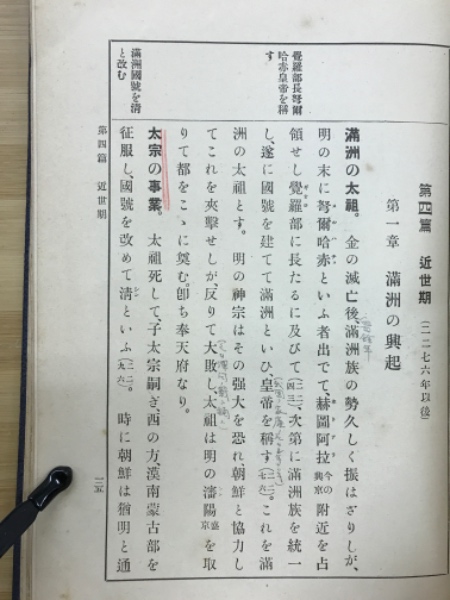 覺羅部長弩爾
哈赤皇帝を稱
す
滿洲國號を淸
と改む
第四篇 近世期 (二二七六年以後)
第一章 滿洲の興起
滿洲の太祖。 金の滅亡後、滿洲族の勢久しく振はざりしが、
明の末に弩爾哈赤といふ者出でて、赫圖阿拉今の興京附近を占
領せし覺羅部に長たるに及びて(二二四三)、次第に滿洲族を統一
し、遂に國號を建てて滿洲といひ、皇帝を稱す(二二七六)。これを滿
洲の太祖とす。 明の神宗はその强大を恐れ、朝鮮と協力し
てこれを夾擊せしが、反りて大敗し、太祖は明の瀋陽盛京を取
りて都をこゝに奠む。卽ち奉天府なり。
太宗の事業。 太祖死して、子太宗嗣ぎ、西の方、漠南蒙古部を
征服し、國號を改めて淸といふ(二二九六)。 時に朝鮮は猶明と通
第四篇 近世期
一二五